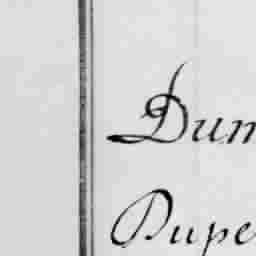 Dum
Dupe